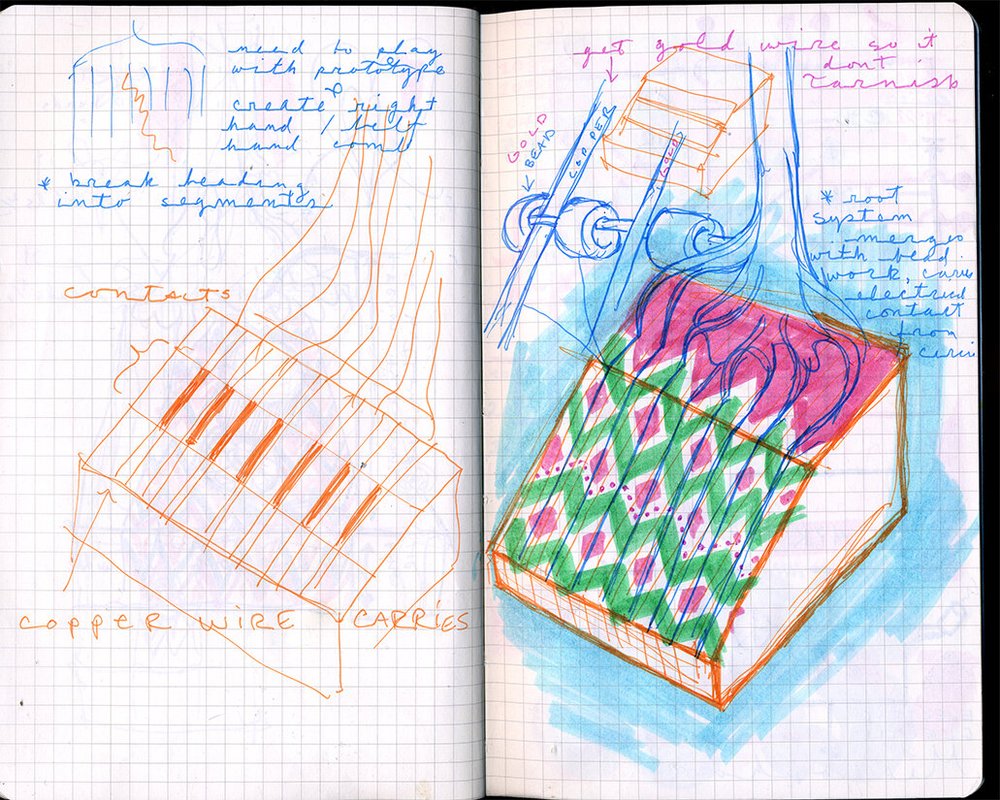 need to play
with prototype
create right
hand / left
hand comb
* break beading
into segments
contacts
copper wire carries
get gold wire so it
dont
tarnish
GOLD
BEAD
COPPER
GOLD
* root
system
merges
with bead
work, caries
electrical
contact
from